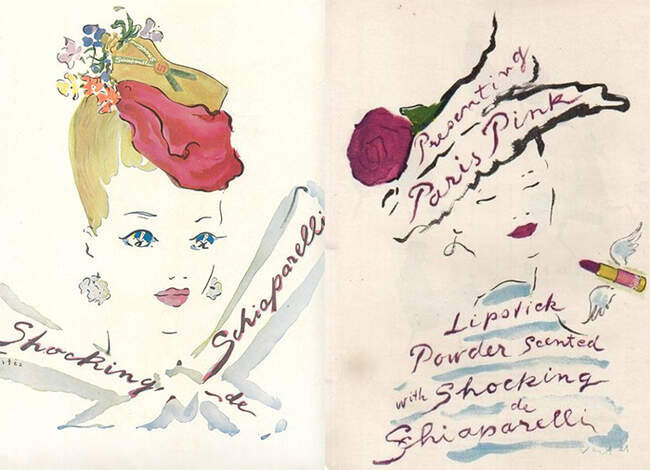 Schiaparelli
Shocking
de
Schiaparelli
Presenting
Paris Pink
Lipstick
Powder scented
with Shocking
de
Schiaparelli